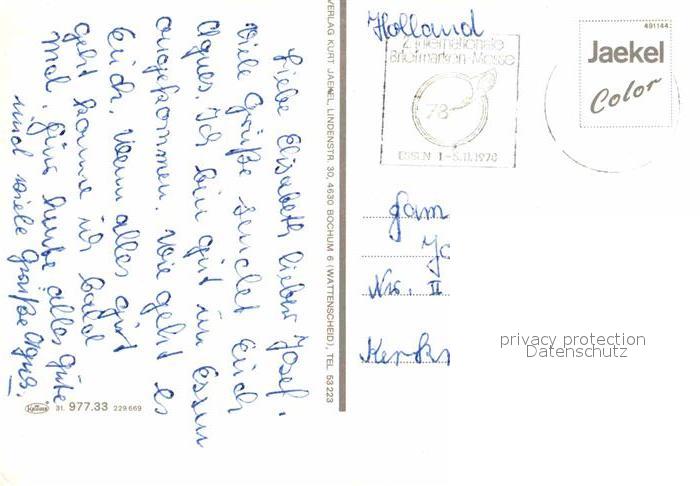 Liebe Elisabeth lieber Josef.
Viele Grüße sendet Euch
Agnes. Ich bin gut in Essen
angekommen. Wie geht es
Euch. Wenn alles gut
geht komme ich bald
mal. Fürs heute alles Gute
und viele Grüße Agnes.
31. 977.33 229 669
VERLAG KURT JAEKEL, LINDENSTR. 30, 4630 BOCHUM 6 (WATTENSCHEID), TEL. 53 223
Holland
2. Internationale
Briefmarken-Messe
78
ESSEN 1-5.11.1978
491144
Jaekel
Color
Fam
Nr. II
privacy protection
Datenschutz